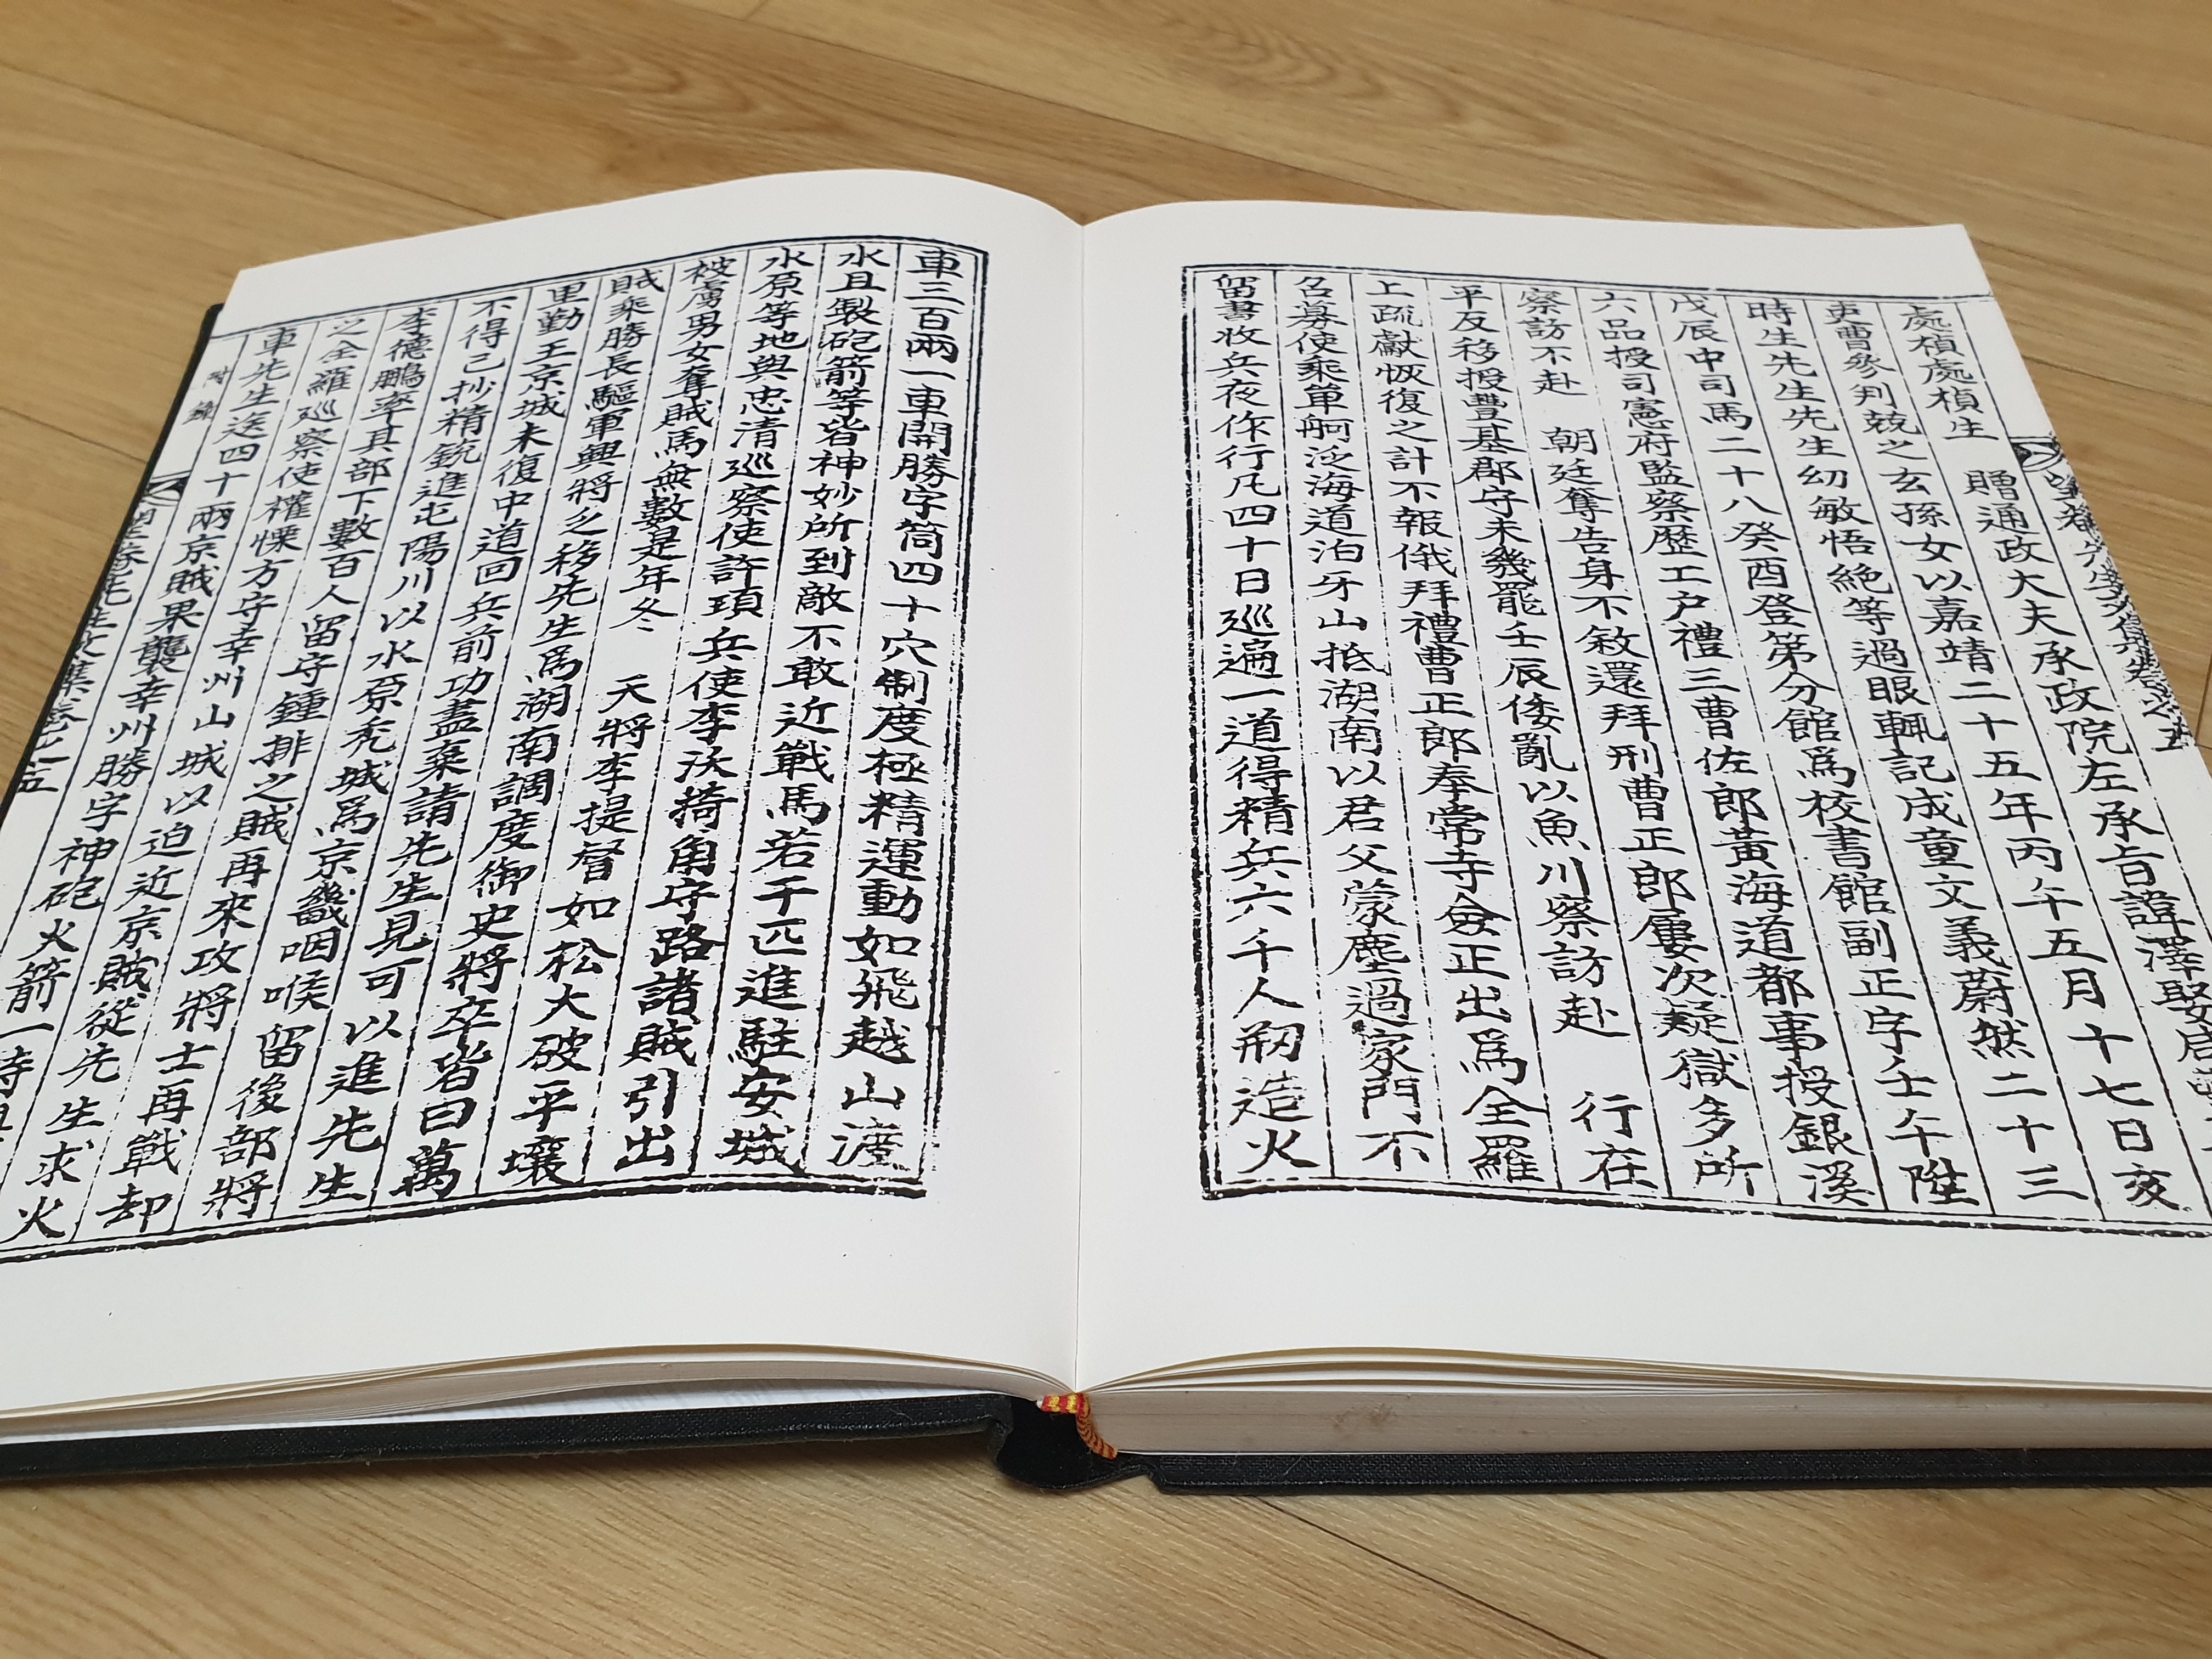 望菴先生文集卷之五
處楨處楨生 贈通政大夫承政院左承旨諱澤娶
吏曹參判兢之玄孫女以嘉靖二十五年丙午五月十七日亥
時生先生先生幼敏悟絶等過眼輒記成童文義蔚然二十三
戊辰中司馬二十八癸酉登第分館爲校書館副正字壬午陞
六品授司憲府監察歷工户禮三曹佐郎黃海道都事授銀溪
察訪不赴 朝廷奪告身不敘還拜刑曹正郎屢次疑獄多所
平反移授豐基郡守未幾罷壬辰倭亂以魚川察訪赴 行在
上疏獻恢復之計不報俄拜禮曹正郎奉常寺僉正出爲全羅
召募使乘單舸泛海道泊牙山抵湖南以君父蒙塵過家門不
留書收兵夜作行凡四十日巡遍一道得精兵六千人刱造火
車三百兩一車開勝字筒四十穴制度極精運動如飛越山渡
水且製砲箭等皆神妙所到敵不敢近戰馬若干匹進駐安城
水原等地與忠清巡察使許頊兵使李沃掎角守路諸賊引出
被虜男女奪賊馬無數是年冬 天將李提督如松大破平壤
賊乘勝長驅軍興將乏移先生爲湖南調度御史將卒皆曰萬
里勤王京城未復中道回兵前功盡棄請先生見可以進先生
不得已抄精銃進屯陽川以水原禿城爲京畿咽喉留後部將
李德鵬率其部下數百人留守鍾排之賊再來攻將士再戰却
之全羅巡察使權慄方守幸州山城以迫近京賊從先生求火
車先生送四十兩京賊果襲幸州勝字神砲火箭一時
附錄
望菴先生文集卷之五